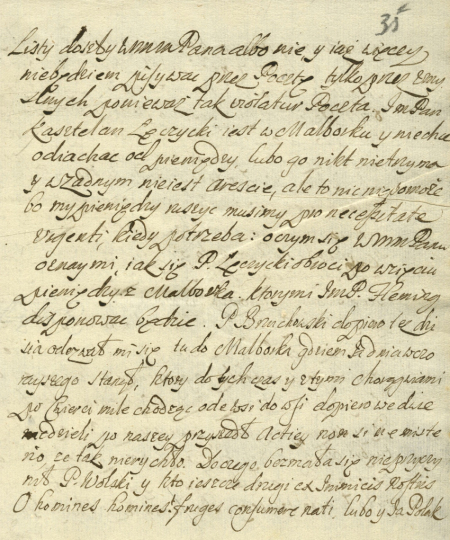 31
Listy doszły WMM Pana albo nie, y iuż więcey
niebędziem pisywać przez Pocztę tylko przez umy
slnych ponieważ tak violatur Poczta. Im Pan
Kasztelan Łęczycki iest w Malborku y niechce
odiachac od pieniędzy, lubo go nikt nietrzyma
y w żadnym nieiest areście, ale to nic niepomoże
bo my pieniędzy ruszyc musimy pro necessitate
urgenti, kiedy potrzeba: o czym się WMM Panu
oznaymi, iak się P. Łęczycki obroci po wzięciu
pieniędzy z Malborka, ktorymi Im P. Fleming
disponowac będzie. P. Bruchowski dopiero też dzi
sia odezwał mi się tu do Malborka gdziem z dnia wczo
rayszego stanął, ktory do tych czas y z tymi chorągwiami
po cwierci mile chodząc ode wsi do wsi dopiero we dwie
niedzieli po naszey przyszedł Actiey non sine miste
rio, że tak nierychło. Do czego, bezmała się nieprzyczy
nił P. Wolski y kto ieszcze drugi ex Inimicis nostris
O homines homines! fruges consumere nati. lubo y Ia Polak